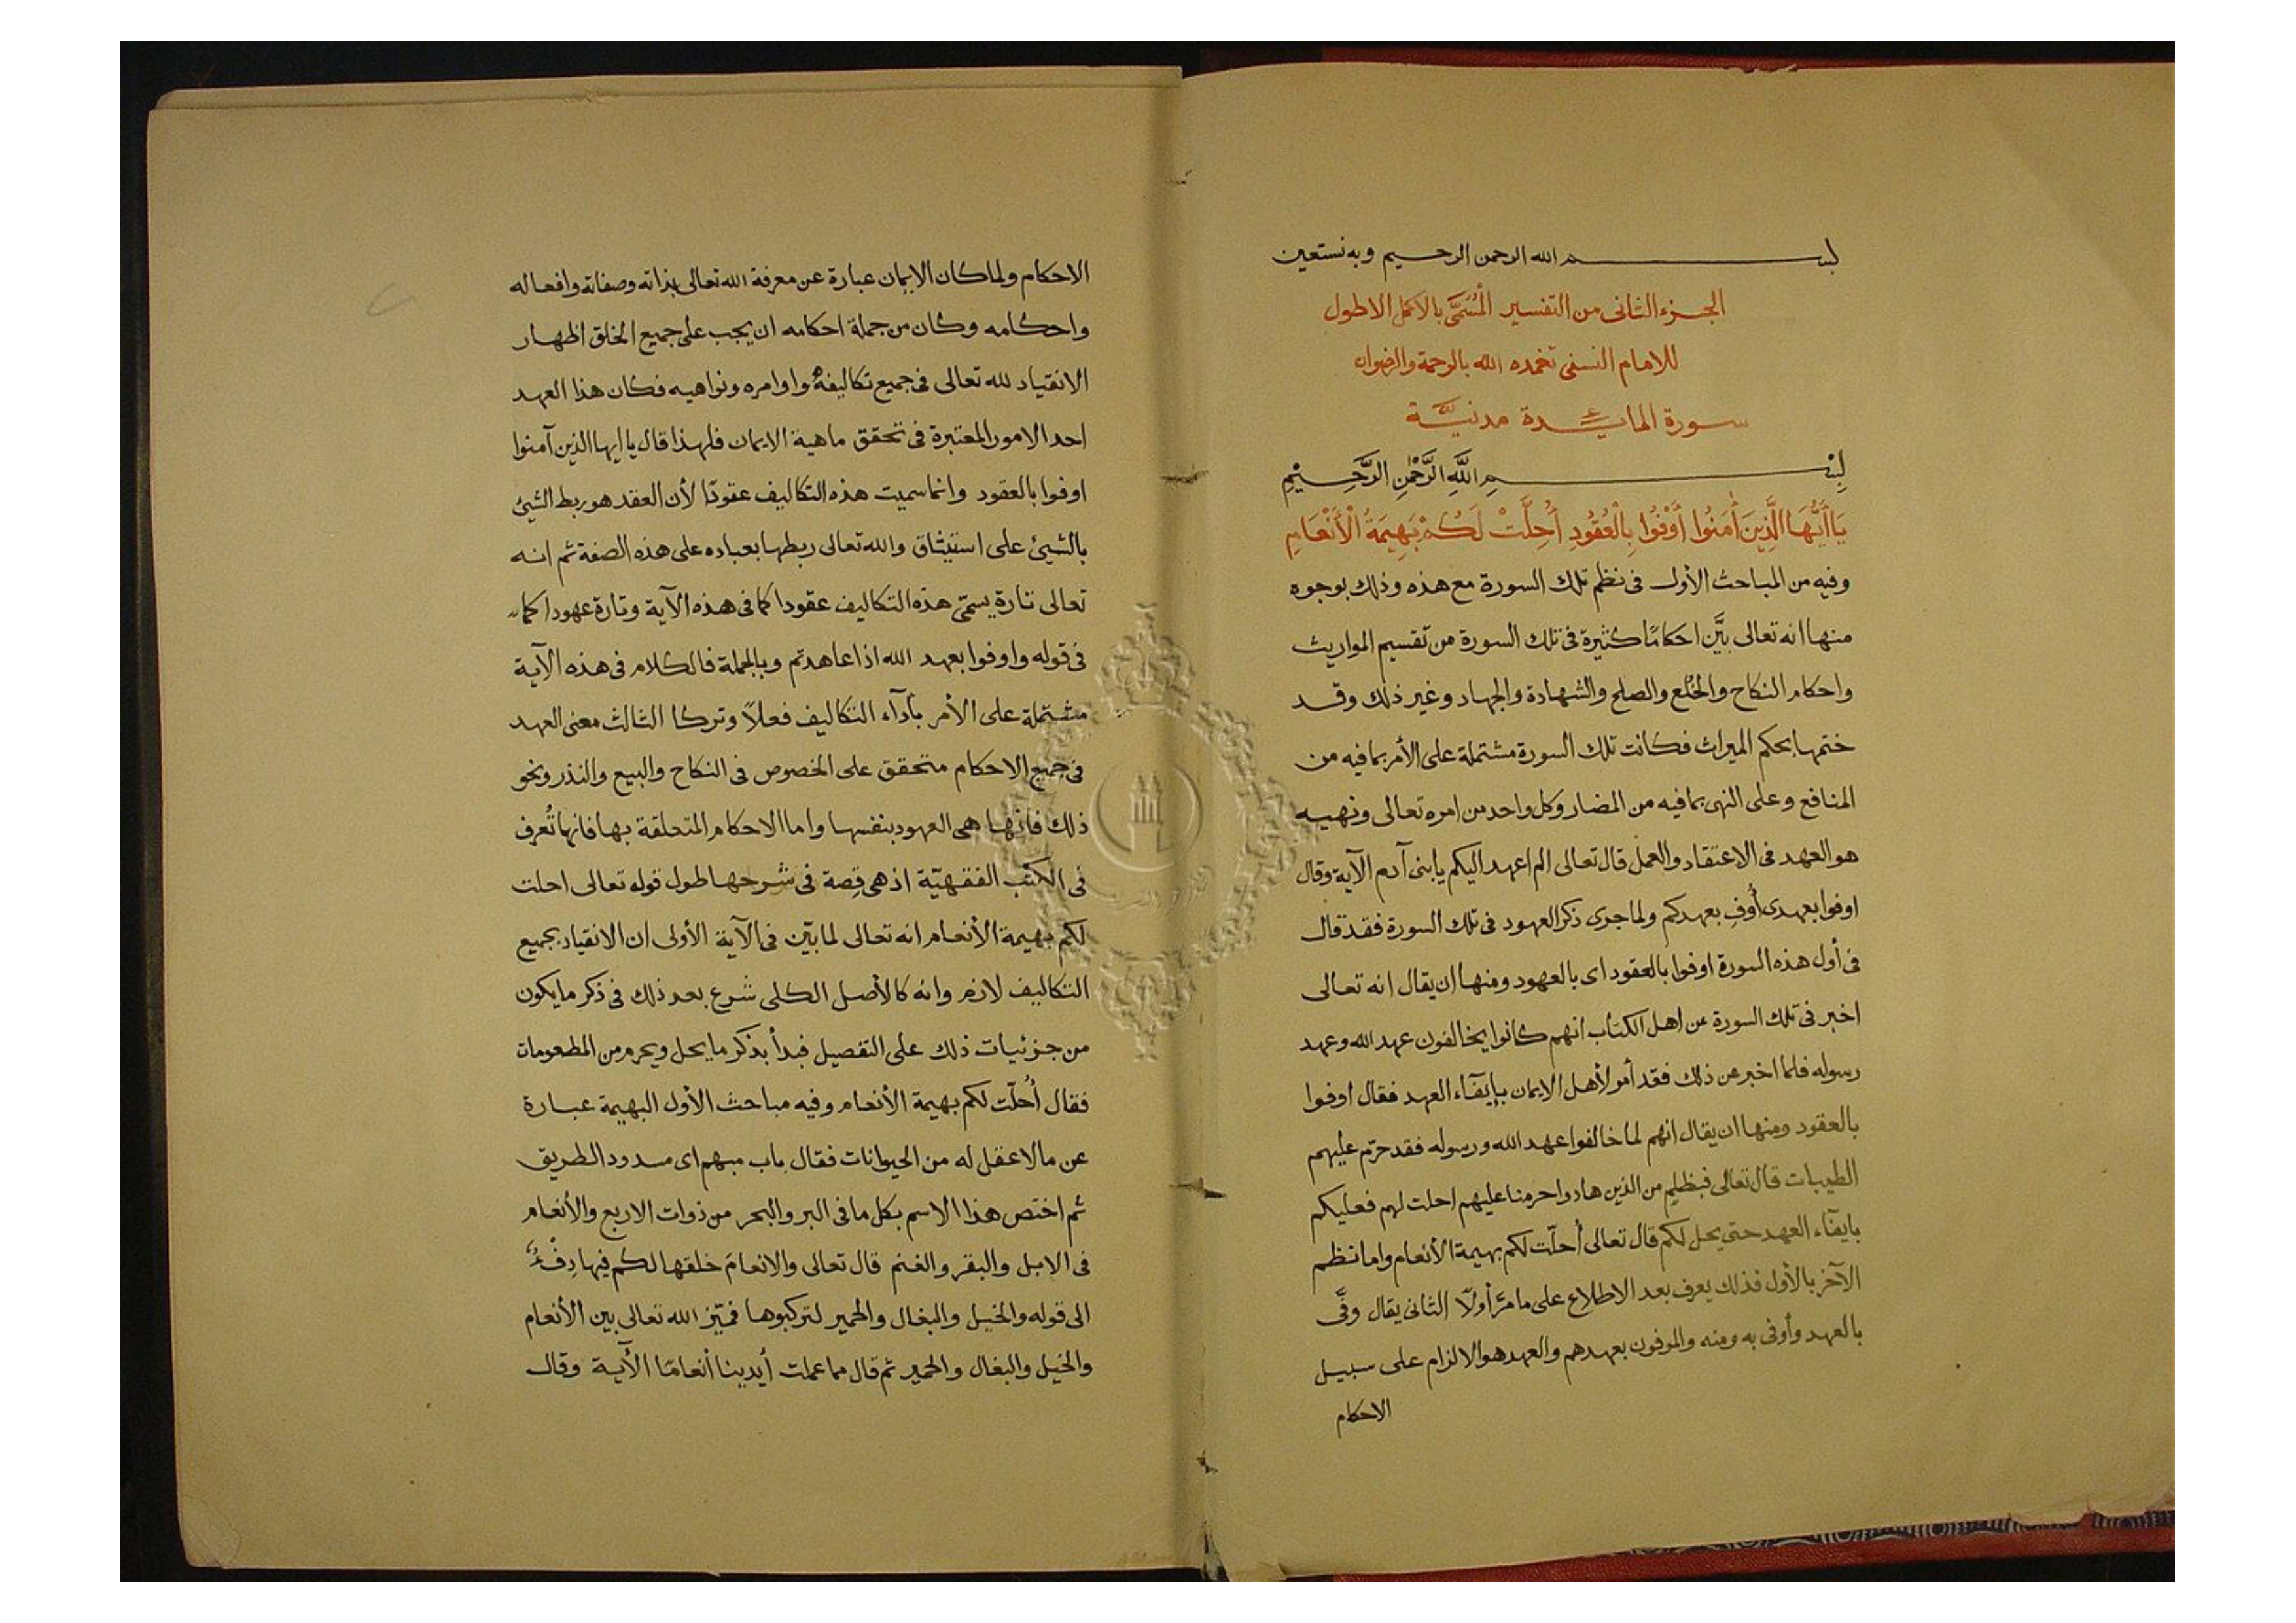 بسم الله الرحمن الرحيم وبه نستعين
الجزء الثانى من التفسير الْمُسَمَّى بالاكمل الاطول
للامام النسفى تغمده الله بالرحمة والرضوان
سورة المايدة مدنيَّة
بِسْمِ اللَّهِ الرَّحْمٰنِ الرَّحِيْمِ
يَاأَيُّهَا الَّذِينَ أٰمَنُوا أَوْفُوا بِالْعُقُودِ أُحِلَّتْ لَكُمْ بَهِيمَةُ الْأَنْعَامِ
وفيه من المباحث الأول فى نظم تلك السورة مع هذه وذلك بوجوه
منها انه تعالى بيَّن احكامًا كثيرة فى تلك السورة من تقسيم المواريث
واحكام النكاح والخُلع والصلح والشهادة والجهاد وغير ذلك وقد
ختمها بحكم الميراث فكانت تلك السورة مشتملة على الأمر بما فيه من
المنافع وعلى النهى بما فيه من المضار وكل واحد من امره تعالى ونهيه
هو العهد فى الاعتقاد والعمل قال تعالى الم اعهد اليكم يا بنى آدم الآية وقال
اوفوا بعهدى أُوفِ بعهدكم ولما جرى ذكر العهود فى تلك السورة فقد قال
فى أول هذه السورة اوفوا بالعقود اى بالعهود ومنها ان يقال انه تعالى
اخبر فى تلك السورة عن اهل الكتاب انهم كانوا يخالفون عهد الله وعهد
رسوله فلما اخبر عن ذلك فقد أمر لأهل الايمان بإيفآء العهد فقال اوفوا
بالعقود ومنها ان يقال انهم لما خالفوا عهد الله ورسوله فقد حرّم عليهم
الطيبات قال تعالى فبظلم من الذين هادوا حرمنا عليهم احلت لهم فعليكم
بايفآء العهد حتى يحل لكم قال تعالى أُحلّت لكم بهيمة الأنعام واما نظم
الآخر بالأول فذلك يعرف بعد الاطلاع على ما مرَّ أولًا الثانى يقال وفَّى
بالعهد وأوفى به ومنه والموفون بعهدهم والعهد هو الالزام على سبيل
الاحكام
الاحكام ولما كان الايمان عبارة عن معرفة الله تعالى بذاته وصفاته وافعاله
واحكامه وكان من جملة احكامه ان يجب على جميع الخلق اظهار
الانقياد لله تعالى فى جميع تكاليفه واوامره ونواهيه فكان هذا العهد
احد الامور المعتبرة فى تحقق ماهية الايمان فلهذا قال يا ايها الذين آمنوا
اوفوا بالعقود وانما سميت هذه التكاليف عقودًا لأن العقد هو ربط الشيئ
بالشيئ على استيثاق والله تعالى ربطها بعباده على هذه الصفة ثم انه
تعالى تارة يسمّى هذه التكاليف عقودا كما فى هذه الآية وتارة عهودا كما
فى قوله واوفوا بعهد الله اذا عاهدتم وبالجملة فالكلام فى هذه الآية
مشتملة على الأمر بأدآء التكاليف فعلاً وتركا الثالث معنى العهد
فى جميع الاحكام متحقق على الخصوص فى النكاح والبيع والنذر ونحو
ذلك فانها هى العهود بنفسها واما الاحكام المتعلقة بها فانها تُعرف
فى الكتب الفقهيّة اذ هى قصة فى شرحها طول قوله تعالى احلت
لكم بهيمة الأنعام انه تعالى لما بيّن فى الآية الأولى ان الانقياد بجميع
التكاليف لازم وانه كالأصل الكلى شرع بعد ذلك فى ذكر ما يكون
من جزئيات ذلك على التفصيل فبدأ بذكر ما يحل ويحرم من المطعومات
فقال أُحلّت لكم بهيمة الأنعام وفيه مباحث الأول البهيمة عبارة
عن ما لا عقل له من الحيوانات فقال باب مبهم اى مسدود الطريق
ثم اختص هذا الاسم بكل ما فى البر والبحر من ذوات الاربع والأنعام
فى الابل والبقر والغنم قال تعالى والانعامَ خلقها لكم فيها دِفْءٌ
الى قوله والخيل والبغال والحمير لتركبوها فميّز الله تعالى بين الأنعام
والخيل والبغال والحمير ثم قال مما عملت أيدينا أنعامًا الآية وقال